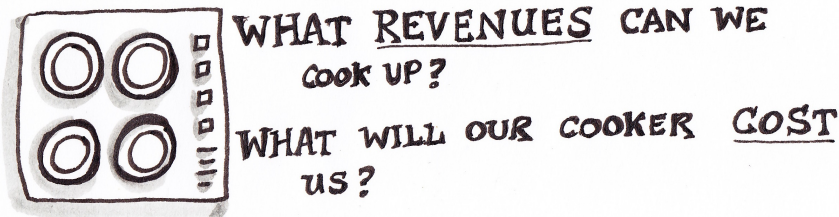 WHAT REVENUES CAN WE
COOK UP?
WHAT WILL OUR COOKER COST
US?